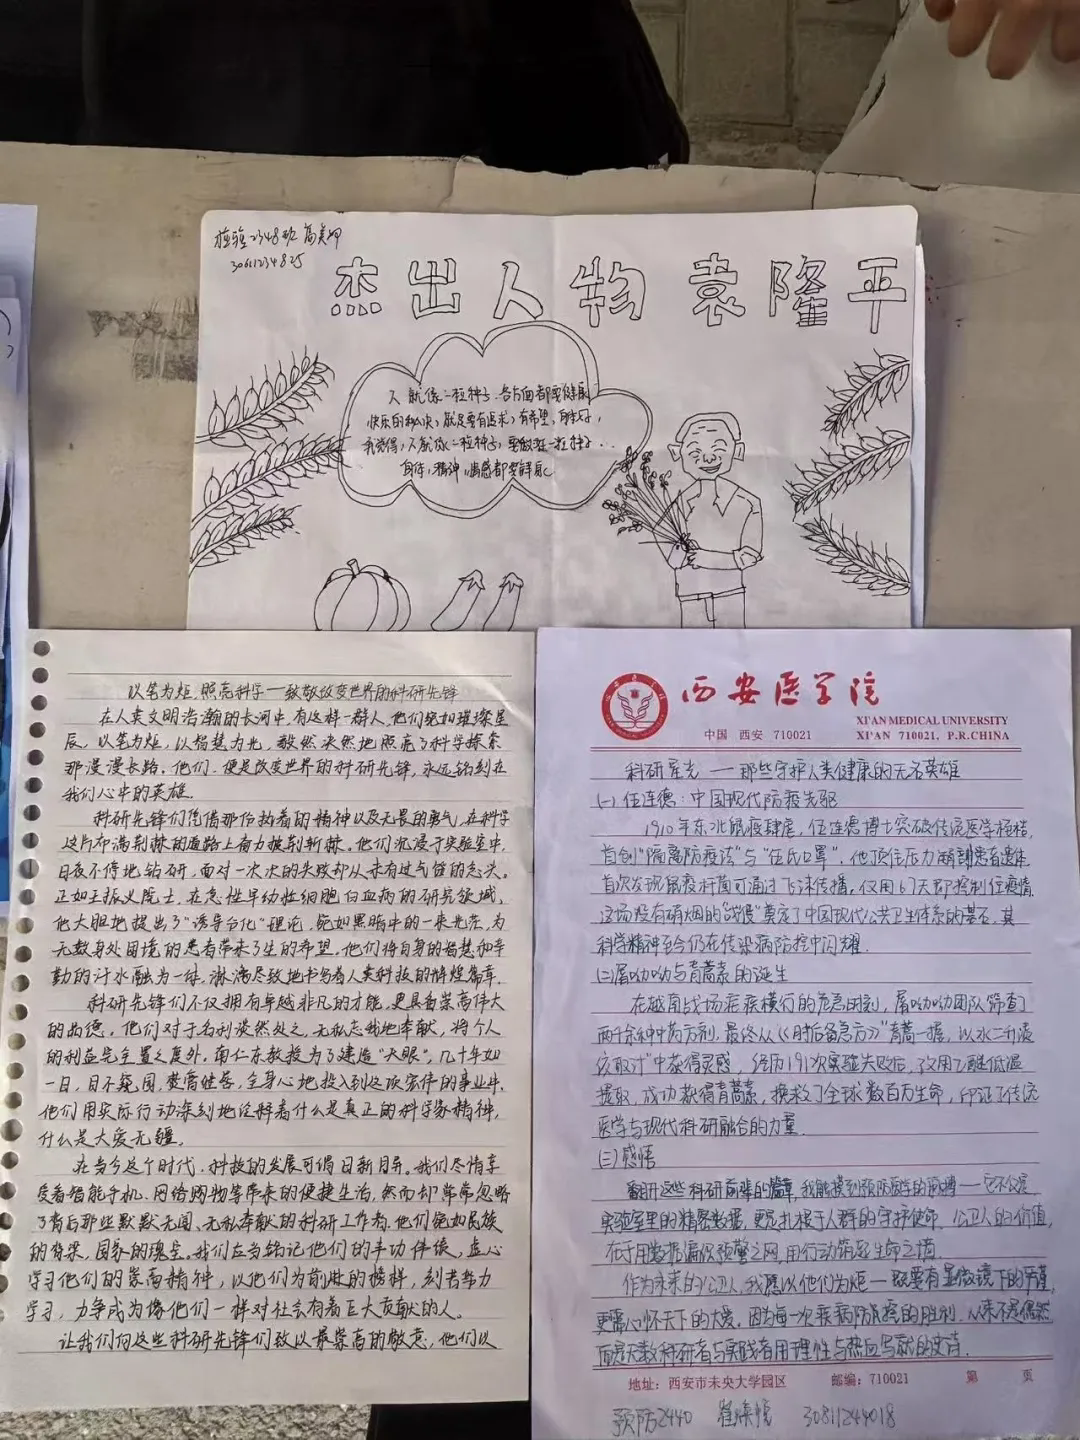 检验2348班
30611234825
杰出人物 袁隆平
人就像一粒种子.各方面都要健康
快乐的秘诀，就是要有追求，有希望，
我觉得，人就像一粒种子，要做一粒好种子...
身体，精神，情感都要健康
以笔为炬,照亮科学—致敬改变世界的科研先锋
在人类文明浩瀚的长河中,有这样一群人,他们宛如璀璨星
辰,以笔为炬,以智慧为光,毅然决然地照亮了科学探索
那漫漫长路.他们,便是改变世界的科研先锋,永远铭刻在
我们心中的英雄.
科研先锋们凭借那份执着的精神以及无畏的勇气,在科学
这片布满荆棘的道路上奋力披荆斩棘.他们沉浸于实验室中,
日夜不停地钻研,面对一次次的失败却从未有过气馁的念头.
正如王振义院士,在急性早幼粒细胞白血病的研究领域,
他大胆地提出了"诱导分化"理论,宛如黑暗中的一束光芒,为
无数身处困境的患者带来了生的希望.他们将自身的智慧和辛
勤的汗水融为一体,淋漓尽致地书写着人类科技的辉煌篇章.
科研先锋们不仅拥有卓越非凡的才能,更具备崇高伟大
的品德.他们对于名利淡然处之,无私忘我地奉献,将个人
的利益完全置之度外.南仁东教授为了建造"天眼",几十年如
一日,目不窥园,焚膏继晷,全身心地投入到这项宏伟的事业中.
他们用实际行动深刻地诠释着什么是真正的科学家精神,
什么是大爱无疆.
在当今这个时代,科技的发展可谓日新月异.我们尽情享
受着智能手机、网络购物等带来的便捷生活,然而却常常忽略
了背后那些默默无闻、无私奉献的科研工作者.他们宛如民族
的脊梁,国家的瑰宝.我们应当铭记他们的丰功伟绩,虚心
学习他们的崇高精神,以他们为前进的榜样,刻苦努力
学习,力争成为像他们一样对社会有着巨大贡献的人.
让我们向这些科研先锋们致以最崇高的敬意,他们以
西安医学院
XI'AN MEDICAL UNIVERSITY
中国 西安 710021
XI'AN 710021, P.R.CHINA
科研星光 — 那些守护人类健康的无名英雄
(一)伍连德:中国现代防疫先驱
1910年东北鼠疫肆虐,伍连德博士突破传统医学桎梏,
首创"隔离防疫法"与"伍氏口罩".他顶住压力解剖患者遗体,
首次发现鼠疫杆菌可通过飞沫传播,仅用67天即控制住疫情.
这场没有硝烟的"战役"奠定了中国现代公共卫生体系的基石,其
科学精神至今仍在传染病防控中闪耀.
(二)屠呦呦与青蒿素的诞生
在越南战场疟疾横行的危急时刻,屠呦呦团队筛查了
两千余种中药方剂,最终从《肘后备急方》"青蒿一握,以水二升渍
绞取汁"中获得灵感,经历191次实验失败后,改用乙醚低温
提取,成功获得青蒿素,挽救了全球数百万生命,印证了传统
医学与现代科研融合的力量.
(三)感悟
翻开这些科研前辈的篇章,我触摸到预防医学的
实验室里的精密数据,更是扎根于人群的守护使命.公卫人的价值,
在于用数据编织预警之网,用行动筑起生命之墙.
作为未来的公卫人,我愿以他们为炬—既要有显微镜下的严谨,
更需心怀天下的大爱.因为每一次疾病防控的胜利,从来不是偶然,
而是无数科研者与实践者用理性与热血写就的史诗.
地址:西安市未央大学园区 邮编:710021 第 页
预防2440 30811244018